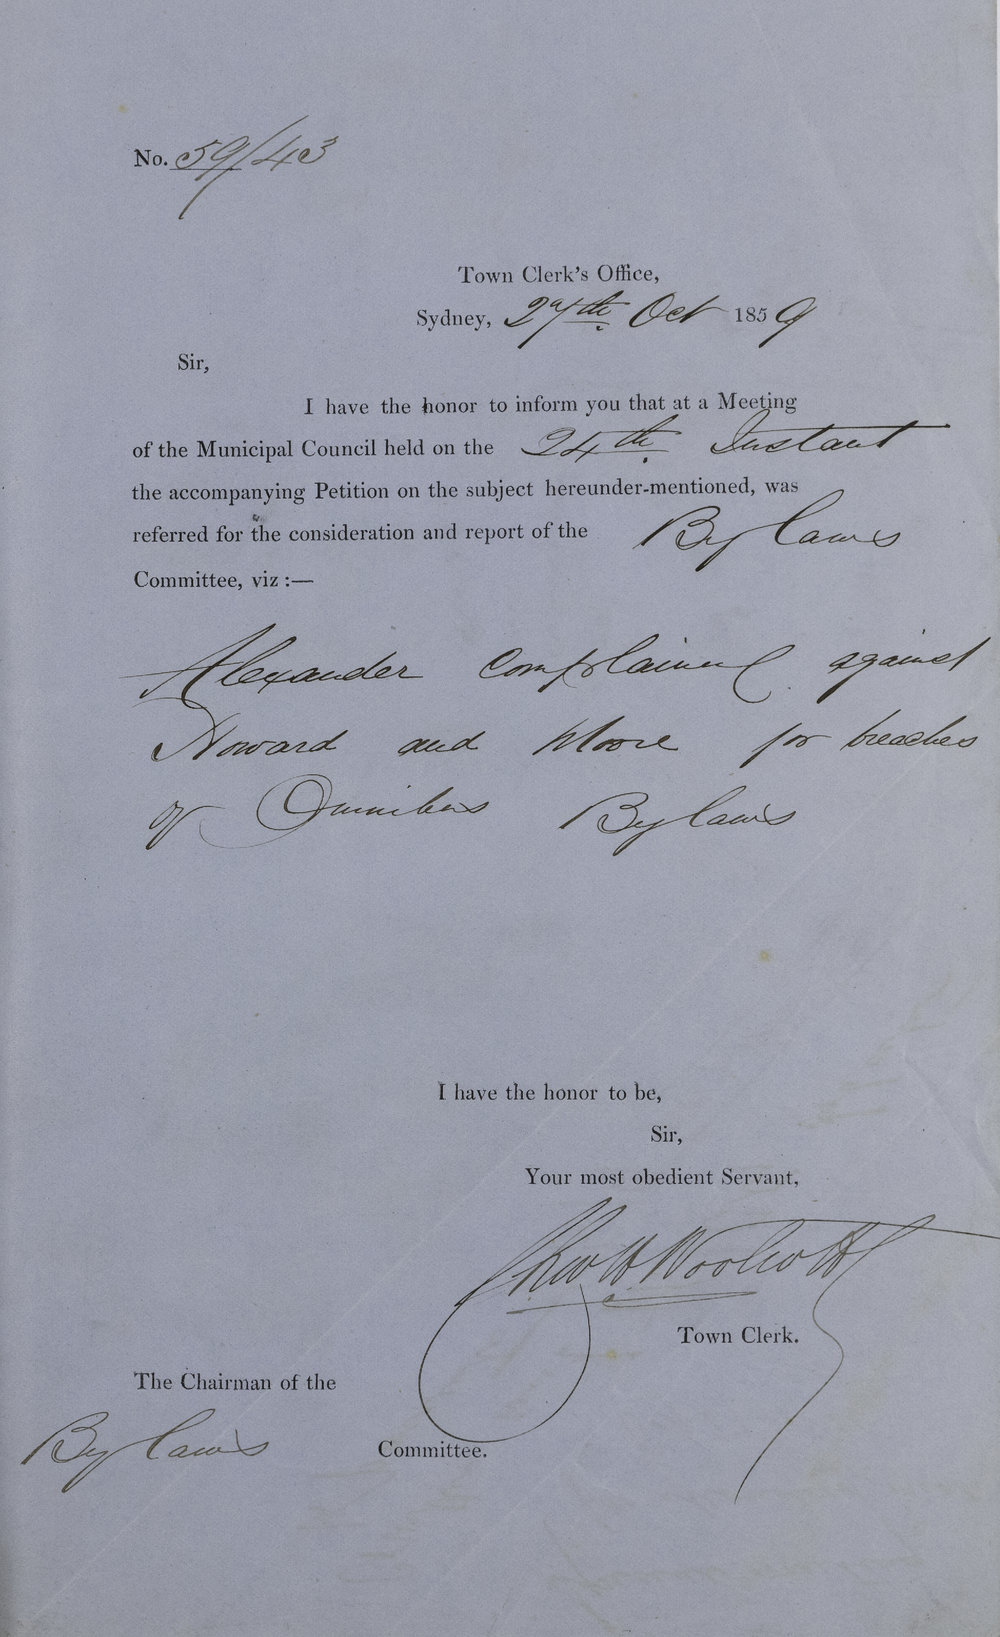 No. 59/43
Town Clerk's Office,
Sydney, 27th Oct 1859
Sir,
I have the honor to inform you that at a Meeting
of the Municipal Council held on the 24th Instant
the accompanying Petition on the subject hereunder-mentioned, was
referred for the consideration and report of the By laws
Committee, viz :—
Alexander complaining against
Howard and Moore for breaches
of Omnibus By laws
I have the honor to be,
Sir,
Your most obedient Servant,
Chas H Woolcott
Town Clerk.
The Chairman of the
By laws Committee.